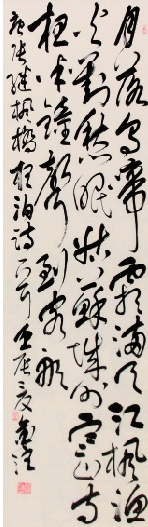 月落乌啼霜满天江枫渔
火对愁眠姑苏城外寒山寺
夜半钟声到客船
唐张继枫桥夜泊诗一首